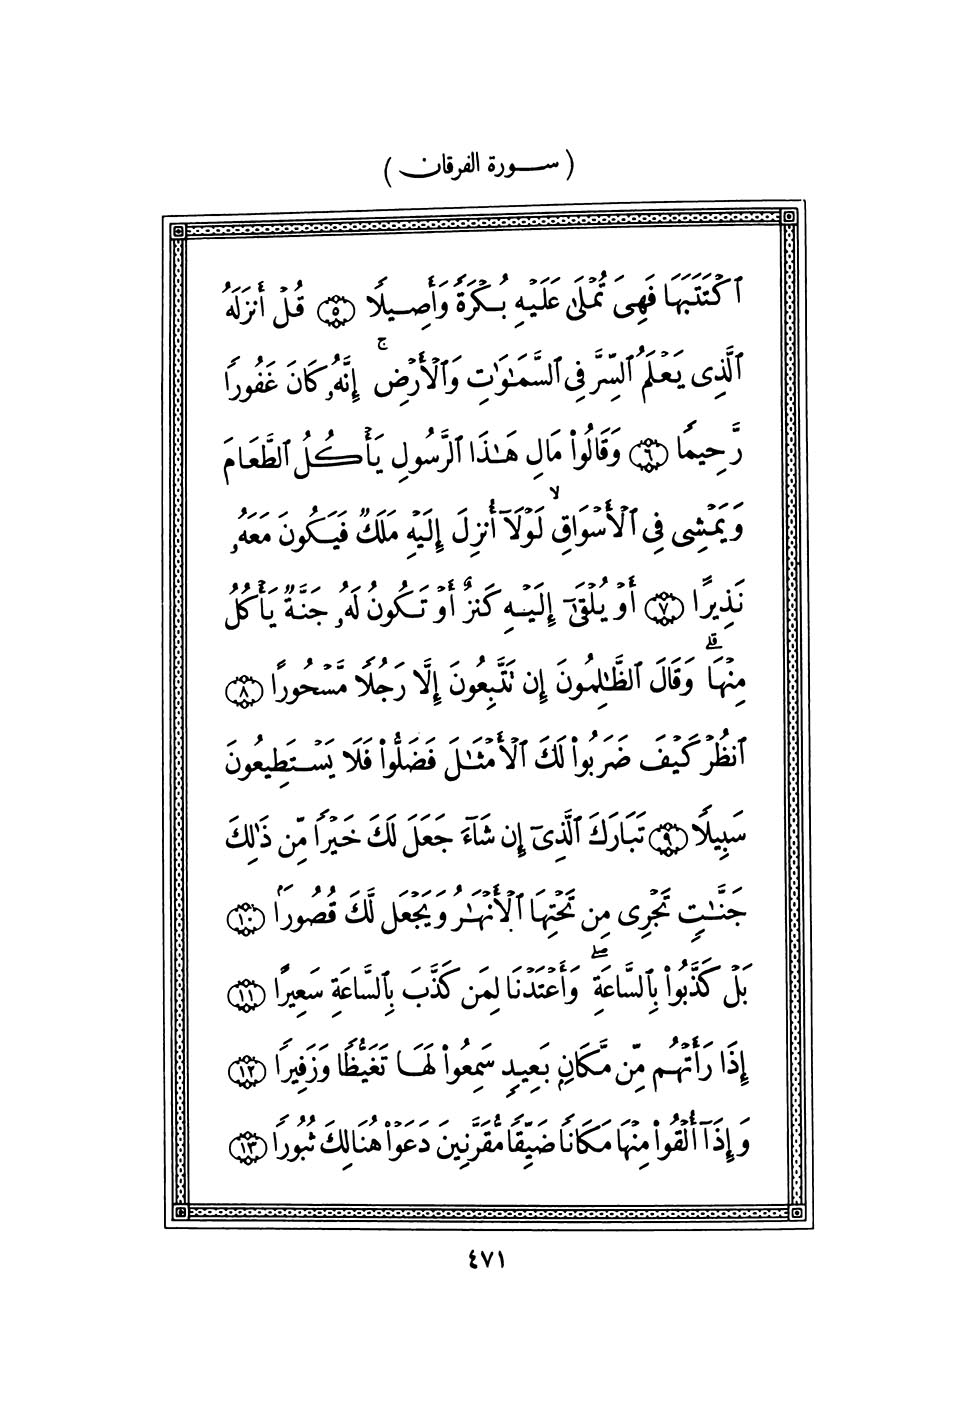 ( سورة الفرقان )
ٱكۡتَتَبَهَا فَهِيَ تُمۡلَىٰ عَلَيۡهِ بُكۡرَةً وَأَصِيلًا ۝٥ قُلۡ أَنزَلَهُ
ٱلَّذِي يَعۡلَمُ ٱلسِّرَّ فِي ٱلسَّمَٰوَٰتِ وَٱلۡأَرۡضِۚ إِنَّهُۥ كَانَ غَفُورًا
رَّحِيمًا ۝٦ وَقَالُواْ مَالِ هَٰذَا ٱلرَّسُولِ يَأۡكُلُ ٱلطَّعَامَ
وَيَمۡشِي فِي ٱلۡأَسۡوَاقِۙ لَوۡلَآ أُنزِلَ إِلَيۡهِ مَلَكٌ فَيَكُونَ مَعَهُۥ
نَذِيرًا ۝٧ أَوۡ يُلۡقَىٰٓ إِلَيۡهِ كَنزٌ أَوۡ تَكُونُ لَهُۥ جَنَّةٌ يَأۡكُلُ
مِنۡهَاۚ وَقَالَ ٱلظَّٰلِمُونَ إِن تَتَّبِعُونَ إِلَّا رَجُلًا مَّسۡحُورًا ۝٨
ٱنظُرۡ كَيۡفَ ضَرَبُواْ لَكَ ٱلۡأَمۡثَٰلَ فَضَلُّواْ فَلَا يَسۡتَطِيعُونَ
سَبِيلًا ۝٩ تَبَارَكَ ٱلَّذِيٓ إِن شَآءَ جَعَلَ لَكَ خَيۡرًا مِّن ذَٰلِكَ
جَنَّٰتٍ تَجۡرِي مِن تَحۡتِهَا ٱلۡأَنۡهَٰرُ وَيَجۡعَل لَّكَ قُصُورَۢا ۝١٠
بَلۡ كَذَّبُواْ بِٱلسَّاعَةِۖ وَأَعۡتَدۡنَا لِمَن كَذَّبَ بِٱلسَّاعَةِ سَعِيرًا ۝١١
إِذَا رَأَتۡهُم مِّن مَّكَانِۭ بَعِيدٍ سَمِعُواْ لَهَا تَغَيُّظًا وَزَفِيرًا ۝١٢
وَإِذَآ أُلۡقُواْ مِنۡهَا مَكَانًا ضَيِّقًا مُّقَرَّنِينَ دَعَوۡاْ هُنَالِكَ ثُبُورًا ۝١٣
٤٧١